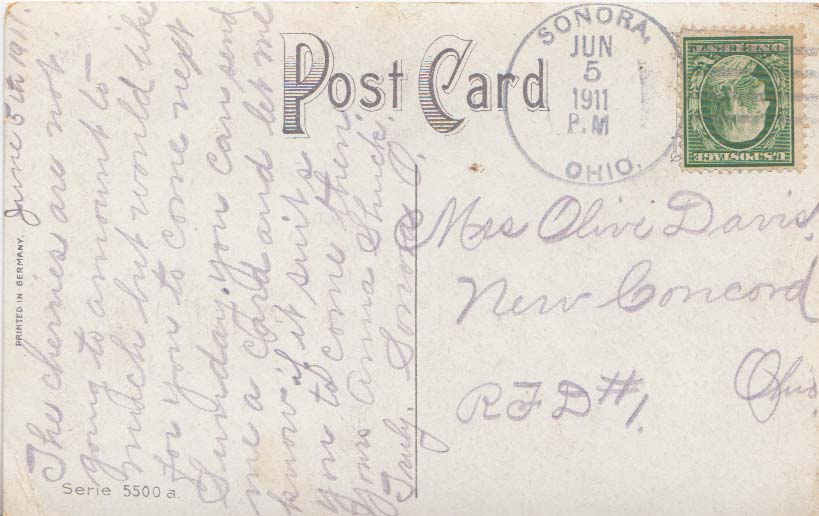 Post Card
SONORA,
JUN
5
1911
P.M
OHIO.
ONE CENT
U.S. POSTAGE
PRINTED IN GERMANY.
Serie 5500 a.
June 5th 1911.
The cherries are not
going to amount to
much but would like
for you to come next
Sunday. you can send
me a card and let me
know if it suits
you to come then.
Yours Anna
Truly. Sonora O.
Mrs Olive Davis,
New Concord
Ohio.
RFD #1.